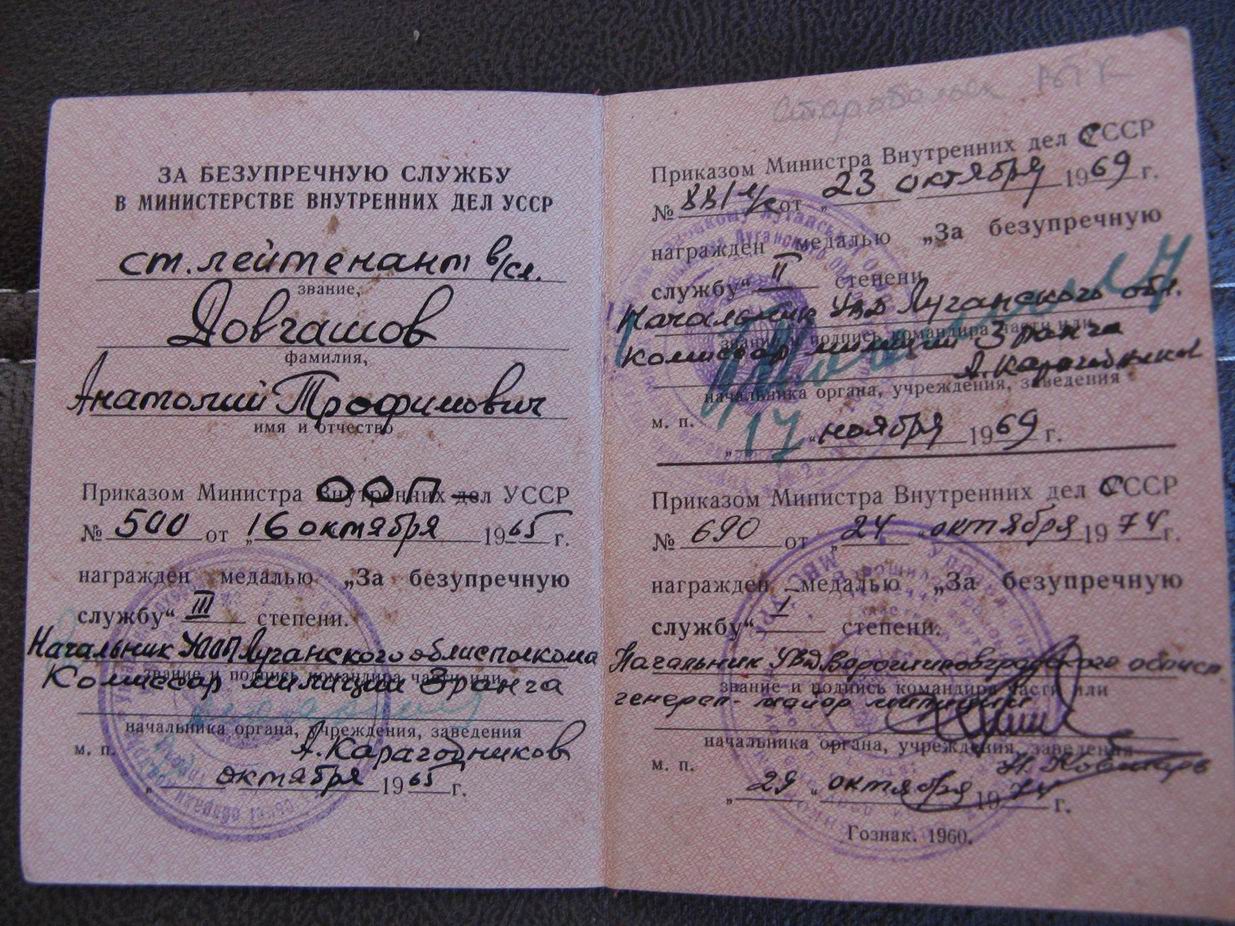 ЗА БЕЗУПРЕЧНУЮ СЛУЖБУ
В МИНИСТЕРСТВЕ ВНУТРЕННИХ ДЕЛ УССР
ст. лейтенант в/сл.
звание,
Довгашов
фамилия,
Анатолий Трофимович
имя и отчество
Приказом Министра ООП УССР
№ 500 от „16 октября 1965 г.
награжден медалью „За безупречную
службу“ III степени.
Начальник УООП Луганского облисполкома
Комиссар милиции 3 ранга
звание и подпись командира части или
начальника органа, учреждения, заведения
А. Карагодников
м. п.
„ октября 1965 г.
Старобельск
Приказом Министра Внутренних дел СССР
№ 881 л/с от „23 октября 1969 г.
награжден медалью „За безупречную
службу“ II степени,
Начальник УВД Луганского обл.
звание и подпись командира части или
Комиссар милиции 3 ранга
А. Карагодников
начальника органа, учреждения, заведения
м. п.
„17 „ ноября 1969 г.
Приказом Министра Внутренних дел СССР
№ 690 от „24 „ октября 1974 г.
награжден медалью „За безупречную
службу“ I степени.
Начальник УВД Ворошиловградского
звание и подпись командира части или
генерал-майор милиции
начальника органа, учреждения, заведения
м. п.
„29 „ октября 1974 г.
Гознак. 1960.